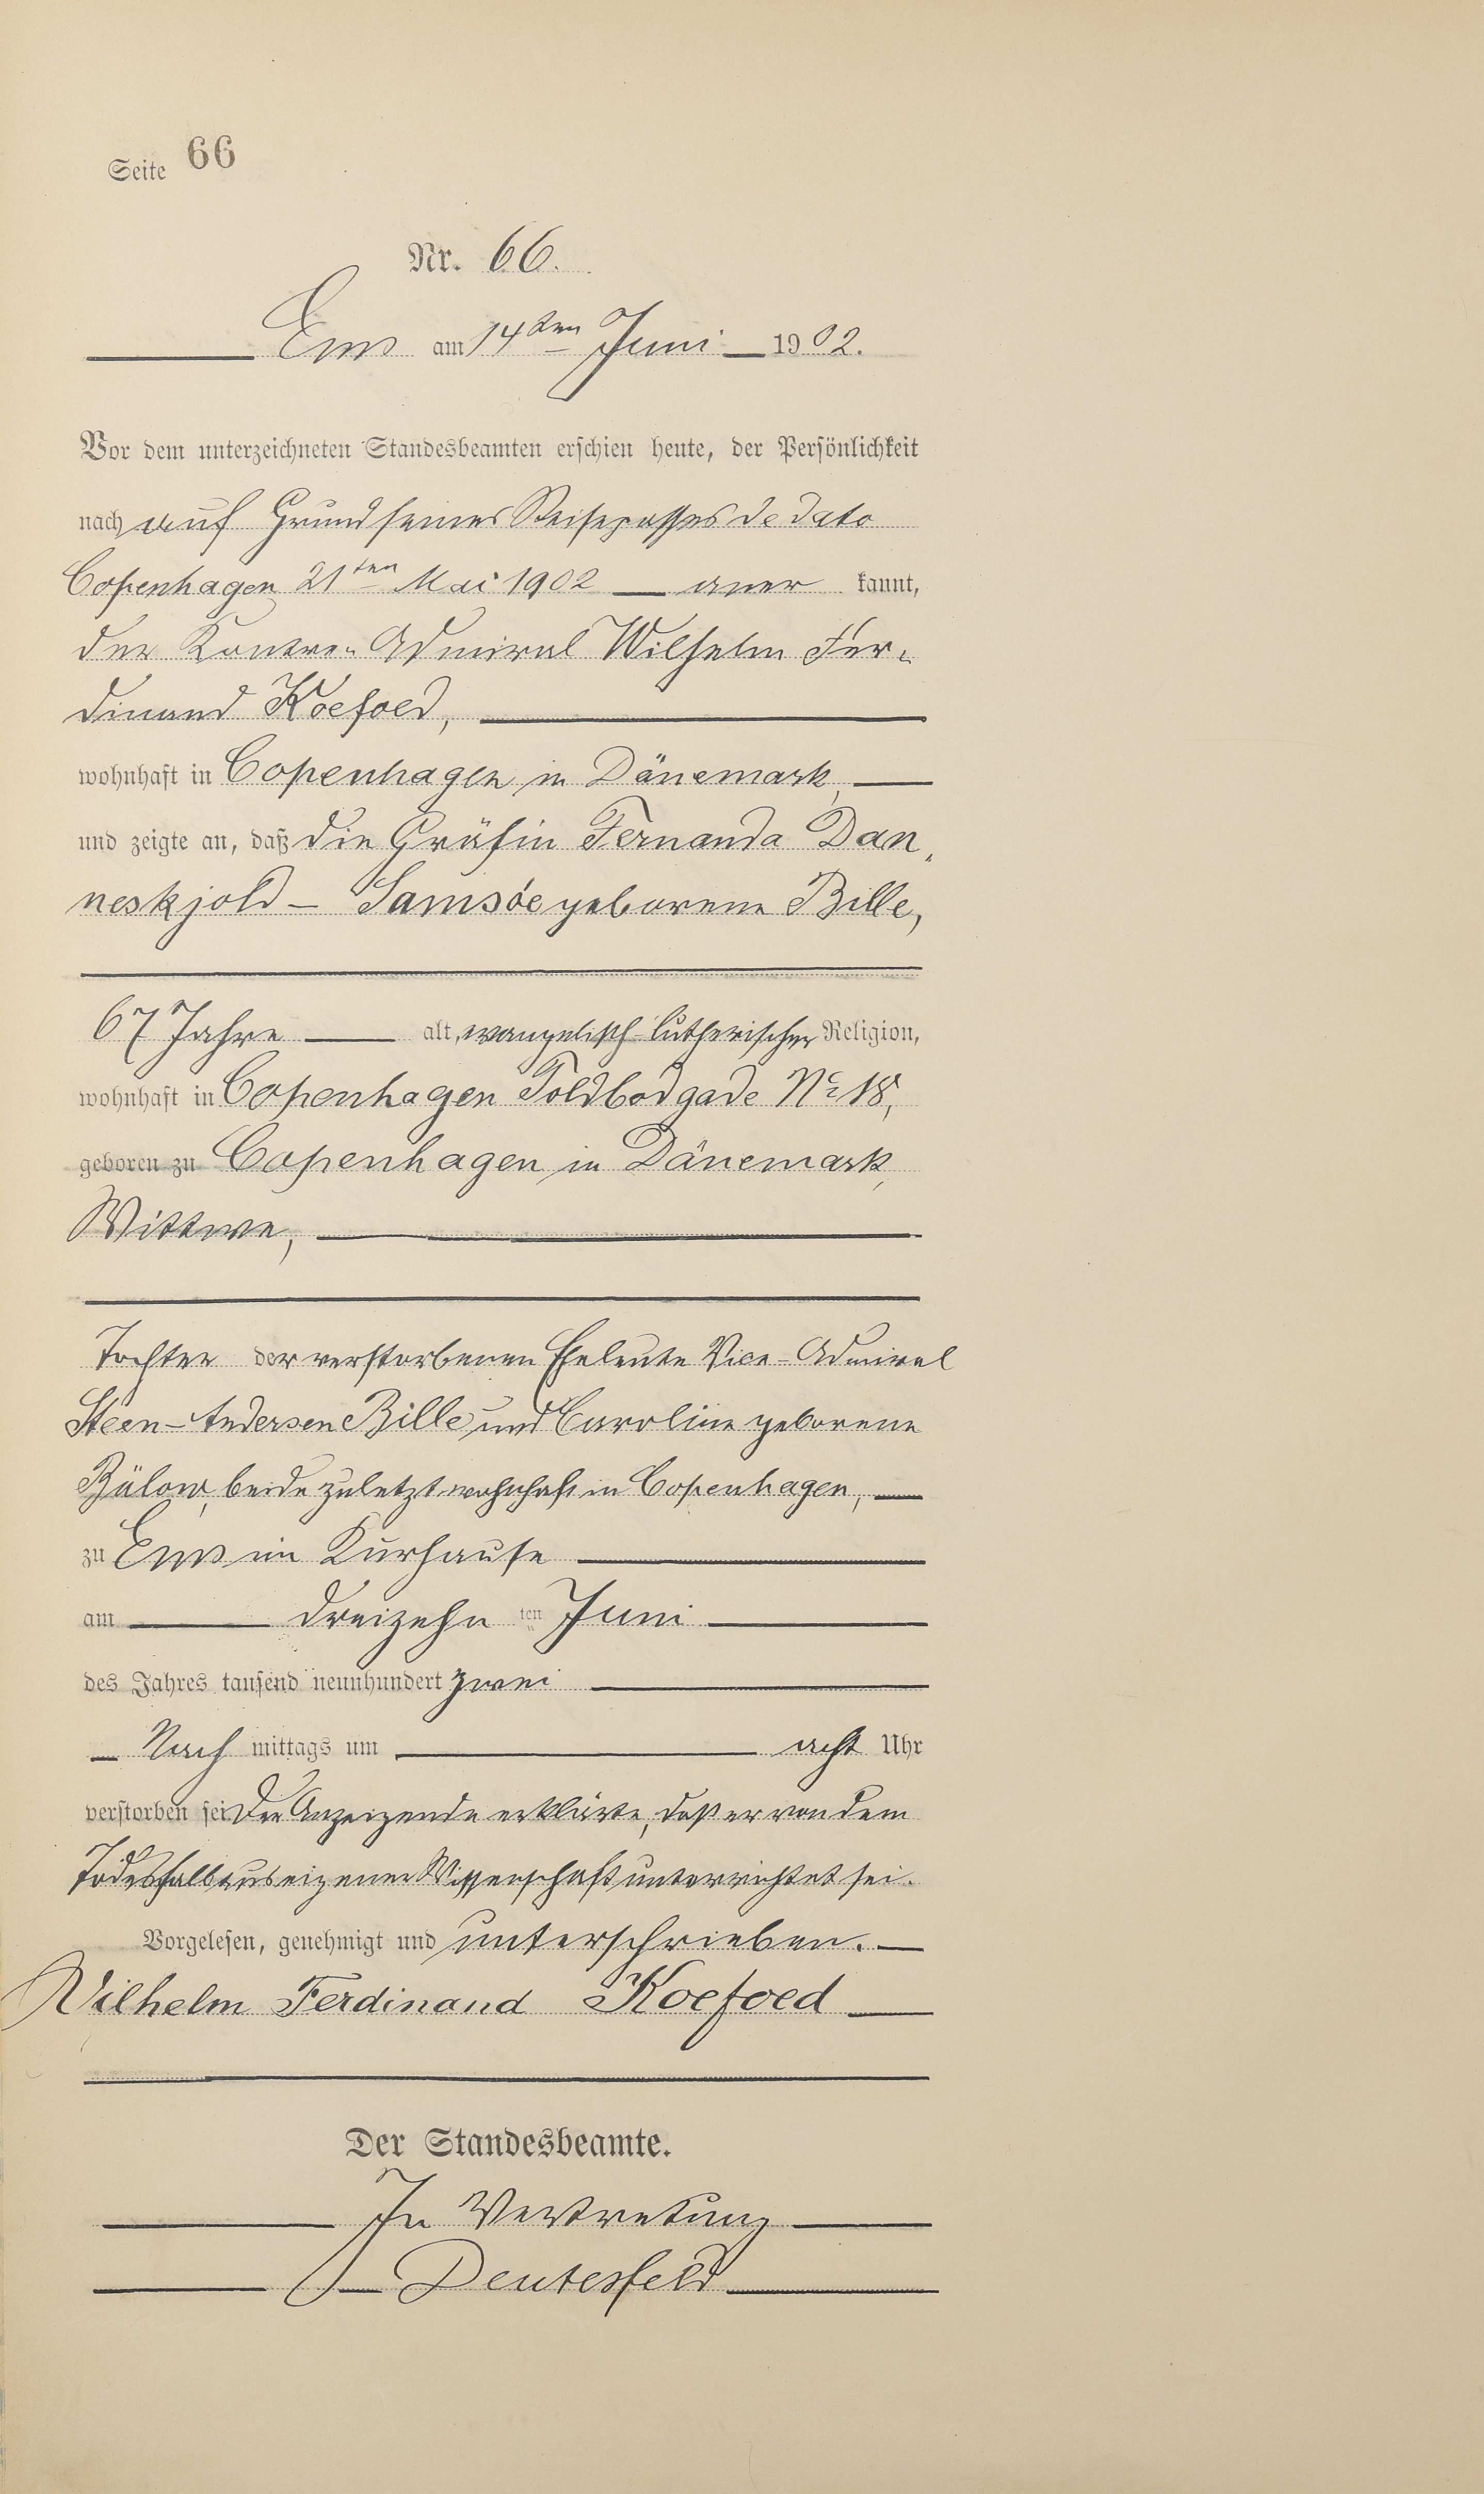 Seite 66
Nr. 66.
Ems am 14ten Juni 1902.
Vor dem unterzeichneten Standesbeamten erschien heute, der Persönlichkeit
nach auf Grund seines Reisepasses de dato
Copenhagen 21ten Mai 1902 — aner kannt,
der Kontre-Admiral Wilhelm Fer-
dinand Koefoed,
wohnhaft in Copenhagen in Dänemark,
und zeigte an, daß die Gräfin Fernanda Dan-
neskjold - Samsöe geborene Bille,
67 Jahre alt, evangelisch-lutherischer Religion,
wohnhaft in Copenhagen Toldbodgade No 18,
geboren zu Copenhagen in Dänemark,
Wittwe,
Tochter der verstorbenen Eheleute Vice-Admiral
Steen-Andersen Bille und Caroline geborene
Bülow, beide zuletzt wohnhaft in Copenhagen,
zu Ems im Kurhause
am dreizehn ten Juni
des Jahres tausend neunhundert zwei
Nach mittags um acht Uhr
verstorben sei. Der Anzeigende erklärte, daß er von dem
Todesfall aus eigener Wissenschaft unterrichtet sei.
Vorgelesen, genehmigt und unterschrieben.
Wilhelm Ferdinand Koefoed
Der Standesbeamte.
In Vertretung
Deutesfeld